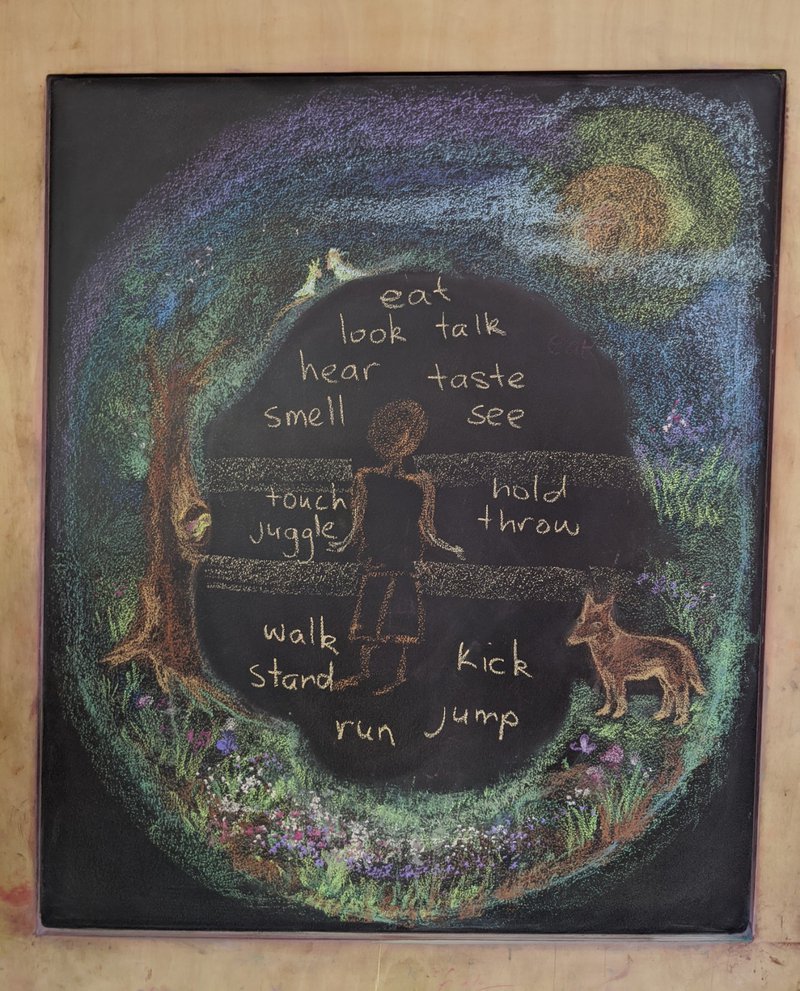 eat
look talk
hear taste
smell see
touch hold
juggle throw
walk kick
stand
run jump